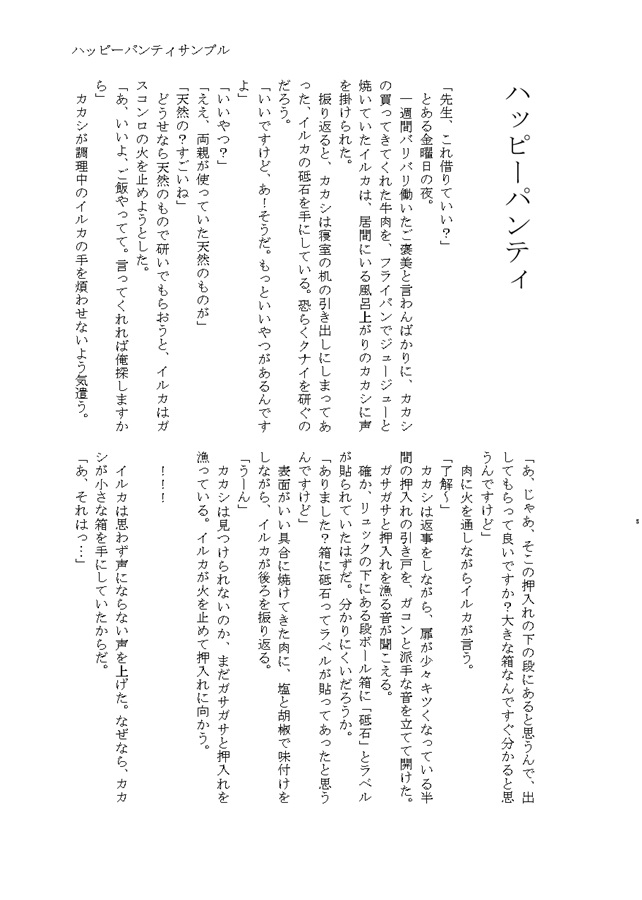 ハッピーパンティサンプル
ハッピーパンティ
「先生、これ借りていい？」
とある金曜日の夜。
一週間バリバリ働いたご褒美と言わんばかりに、カカシ
の買ってきてくれた牛肉を、フライパンでジュージューと
焼いていたイルカは、居間にいる風呂上がりのカカシに声
を掛けられた。
振り返ると、カカシは寝室の机の引き出しにしまってあ
った、イルカの砥石を手にしている。恐らくクナイを研ぐの
だろう。
「いいですけど、あ！そうだ。もっといいやつがあるんです
よ」
「いいやつ？」
「ええ、両親が使っていた天然のものが」
「天然の？すごいね」
どうせなら天然のもので研いでもらおうと、イルカはガ
スコンロの火を止めようとした。
「あ、いいよ、ご飯やってて。言ってくれれば俺探しますか
ら」
カカシが調理中のイルカの手を煩わせないよう気遣う。
「あ、じゃあ、そこの押入れの下の段にあると思うんで、出
してもらって良いですか？大きな箱なんですぐ分かると思
うんですけど」
肉に火を通しながらイルカが言う。
「了解～」
カカシは返事をしながら、扉が少々キツくなっている半
間の押入れの引き戸を、ガコンと派手な音を立てて開けた。
ガサガサと押入れを漁る音が聞こえる。
確か、リュックの下にある段ボール箱に「砥石」とラベル
が貼られていたはずだ。分かりにくいだろうか。
「ありました？箱に砥石ってラベルが貼ってあったと思う
んですけど」
表面がいい具合に焼けてきた肉に、塩と胡椒で味付けを
しながら、イルカが後ろを振り返る。
「うーん」
カカシは見つけられないのか、まだガサガサと押入れを
漁っている。イルカが火を止めて押入れに向かう。
！！！
イルカは思わず声にならない声を上げた。なぜなら、カカ
シが小さな箱を手にしていたからだ。
「あ、それはっ…」